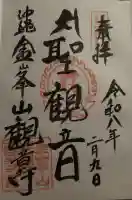 奉拝
令和八年
二月九日
大聖観音
沖縄金峯山観音寺